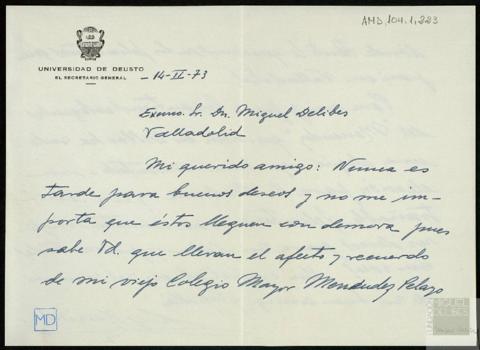 AMD, 104, 1, 223
UNIVERSIDAD DE DEUSTO
EL SECRETARIO GENERAL
-14-II-73
Excmo. Sr. Dn. Miguel Delibes
Valladolid
Mi querido amigo: Nunca es
tarde para buenos deseos y no me im-
porta que éstos lleguen con demora pues
sabe Vd. que llevan el afecto y recuerdo
de mi viejo Colegio Mayor Menéndez Pelayo
MD
FUNDACIÓN
MIGUEL
DELIBES